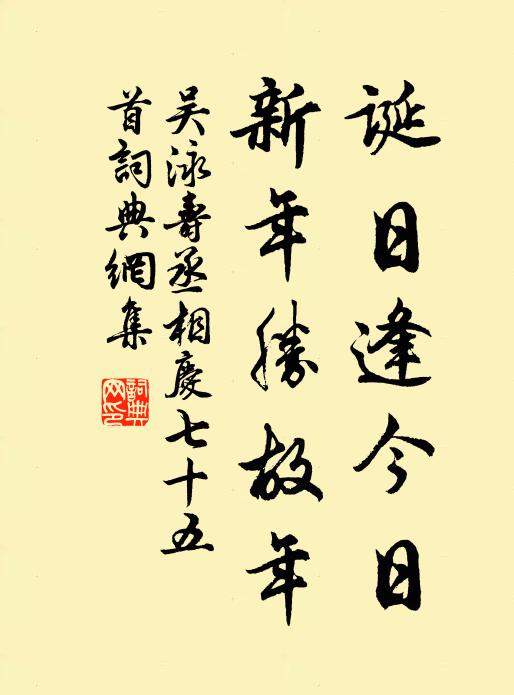 誕日逢今日
新年勝故年
吳泳壽丞相慶七十五
首詞典網集
詞典网印